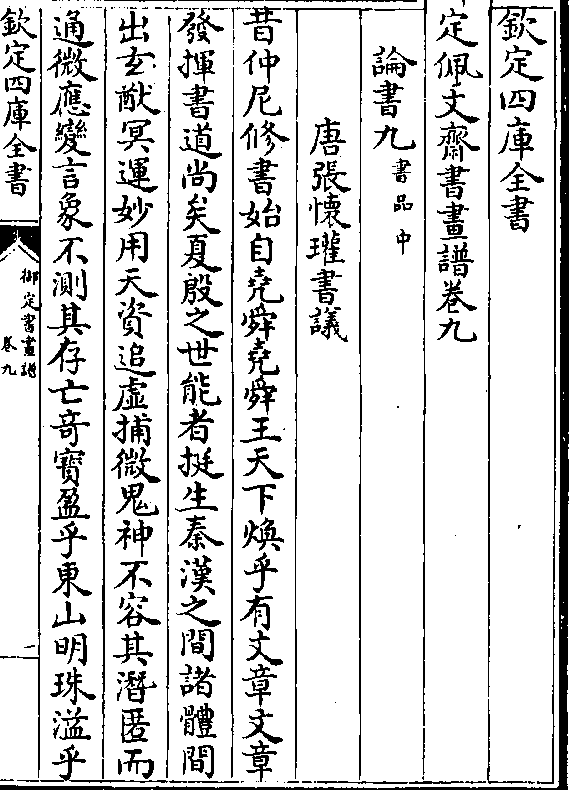 欽定四庫全書
定佩文齋書畫譜卷九
論書九書品中
唐張懷瓘書議
昔仲尼修書始自堯舜堯舜王天下煥乎有文章文章
發揮書道尚矣夏殷之世能者挺生秦漢之間諸體間
出玄猷冥運妙用天資追虛捕微鬼神不容其潛匿而
通微應變言象不測其存亡奇寶盈乎東山明珠溢乎
欽定四庫全書
御定書畫譜
卷九
一